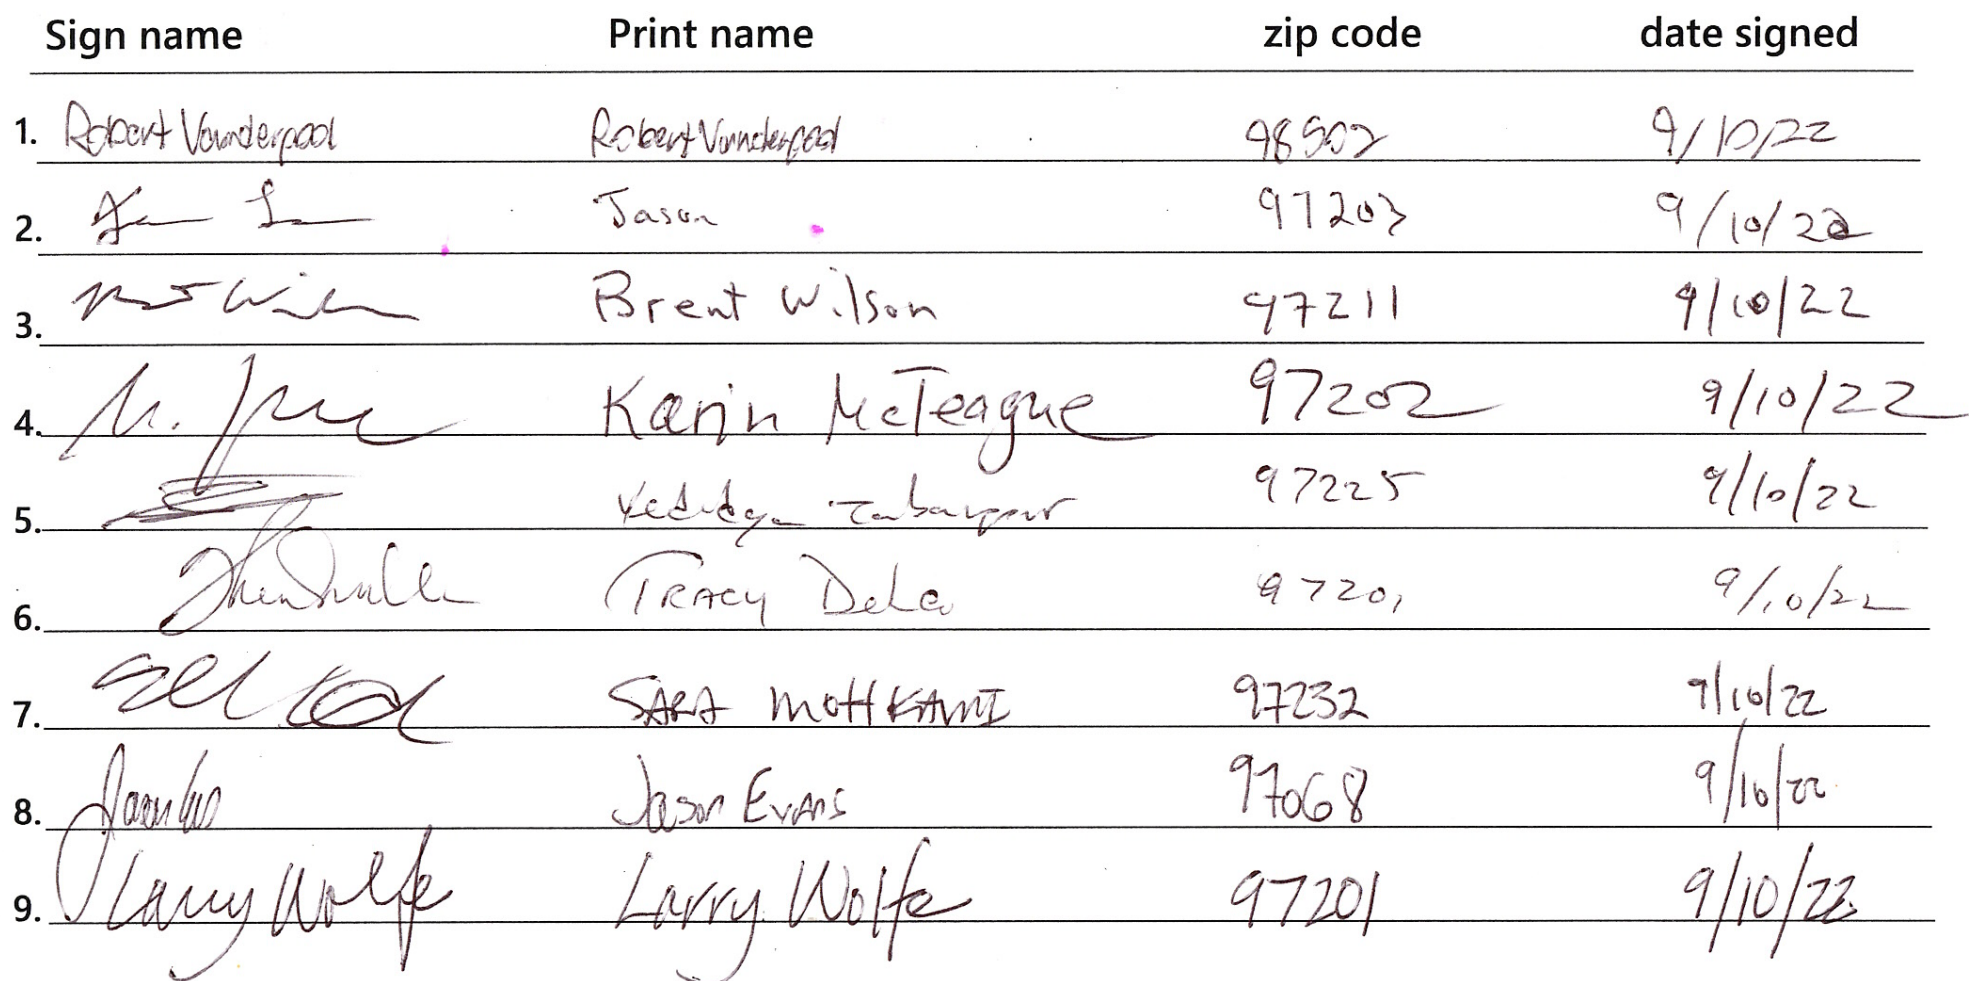 Sign name Print name zip code date signed
1. Robert Vannderpool Robert Vannderpool 98502 9/10/22
2. Jason 97203 9/10/22
3. Brent Wilson 97211 9/10/22
4. Karin McTeague 97202 9/10/22
5. 97225 9/10/22
6. TRACY 97201 9/10/22
7. SARA 97232 9/10/22
8. Jason Evans 97068 9/10/22
9. Larry Wolfe Larry Wolfe 97201 9/10/22